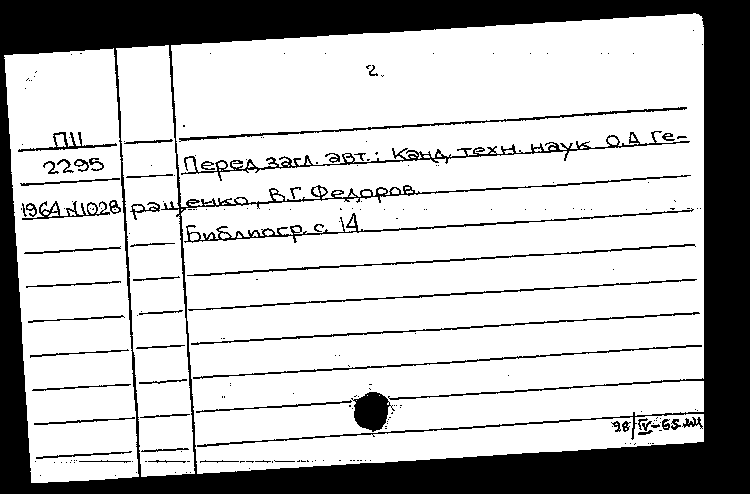 2.
П11
2295
1964 №1028
Перед загл. авт.: Канд. техн. наук О.А. Ге-
ращенко, В.Г. Федоров.
Библиогр. с. 14
IV-65